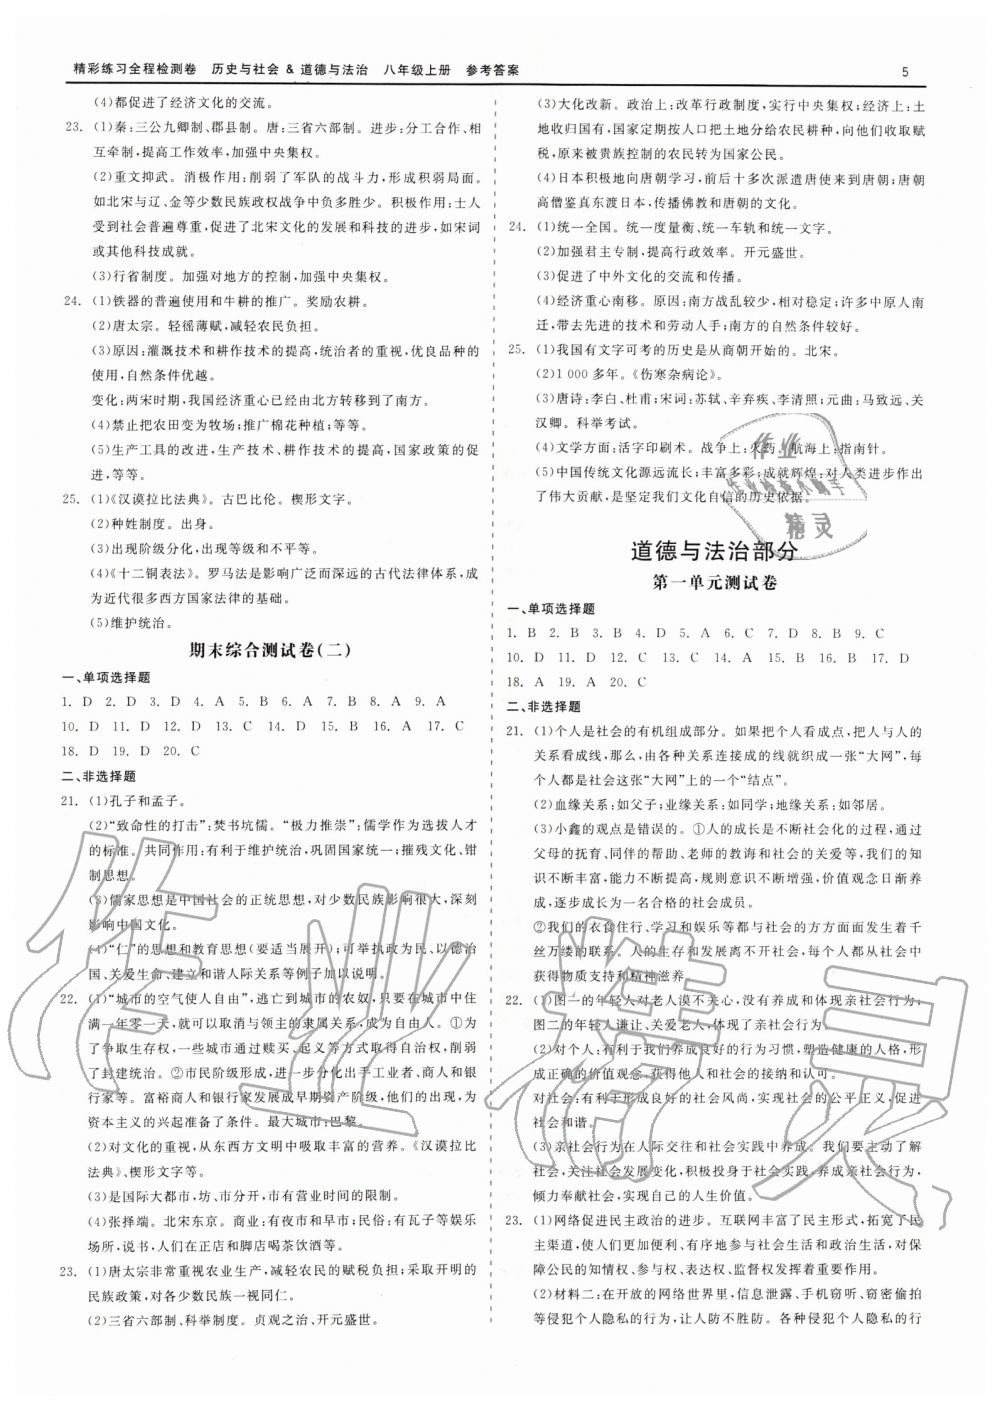 精彩练习全程检测卷 历史与社会 & 道德与法治 八年级上册 参考答案
5
(4)都促进了经济文化的交流。
23. (1)秦:三公九卿制、郡县制。唐:三省六部制。进步:分工合作、相
互牵制,提高工作效率,加强中央集权。
(2)重文抑武。消极作用:削弱了军队的战斗力,形成积弱局面。
如北宋与辽、金等少数民族政权战争中负多胜少。积极作用:士人
受到社会普遍尊重,促进了北宋文化的发展和科技的进步,如宋词
或其他科技成就。
(3)行省制度。加强对地方的控制,加强中央集权。
24. (1)铁器的普遍使用和牛耕的推广。奖励农耕。
(2)唐太宗。轻徭薄赋,减轻农民负担。
(3)原因:灌溉技术和耕作技术的提高,统治者的重视,优良品种的
使用,自然条件优越。
变化:两宋时期,我国经济重心已经由北方转移到了南方。
(4)禁止把农田变为牧场;推广棉花种植;等等。
(5)生产工具的改进,生产技术、耕作技术的提高,国家政策的促
进,等等。
25. (1)《汉谟拉比法典》。古巴比伦。楔形文字。
(2)种姓制度。出身。
(3)出现阶级分化,出现等级和不平等。
(4)《十二铜表法》。罗马法是影响广泛而深远的古代法律体系,成
为近代很多西方国家法律的基础。
(5)维护统治。
期末综合测试卷(二)
一、单项选择题
1. D 2. D 3. D 4. A 5. B 6. A 7. B 8. A 9. A
10. D 11. D 12. D 13. C 14. D 15. B 16. A 17. C
18. D 19. D 20. C
二、非选择题
21. (1)孔子和孟子。
(2)“致命性的打击”:焚书坑儒。“极力推崇”:儒学作为选拔人才
的标准。共同作用:有利于维护统治,巩固国家统一;摧残文化、钳
制思想。
(3)儒家思想是中国社会的正统思想,对少数民族影响很大,深刻
影响中国文化。
(4)“仁”的思想和教育思想(要适当展开);可举执政为民、以德治
国、关爱生命、建立和谐人际关系等例子加以说明。
22. (1)“城市的空气使人自由”,逃亡到城市的农奴,只要在城市中住
满一年零一天,就可以取消与领主的隶属关系,成为自由人。①为
了争取生存权,一些城市通过赎买、起义等方式取得自治权,削弱
了封建统治。②市民阶级形成,进一步分化出手工业者、商人和银
行家等。富裕商人和银行家发展成早期资产阶级,他们的出现,为
资本主义的兴起准备了条件。最大城市:巴黎。
(2)对文化的重视,从东西方文明中吸取丰富的营养。《汉谟拉比
法典》、楔形文字等。
(3)是国际大都市,坊、市分开,市有营业时间的限制。
(4)张择端。北宋东京。商业:有夜市和早市;民俗:有瓦子等娱乐
场所,说书,人们在正店和脚店喝茶饮酒等。
23. (1)唐太宗非常重视农业生产,减轻农民的赋税负担;采取开明的
民族政策,对各少数民族一视同仁。
(2)三省六部制、科举制度。贞观之治、开元盛世。
(3)大化改新。政治上:改革行政制度,实行中央集权;经济上:土
地收归国有,国家定期按人口把土地分给农民耕种,向他们收取赋
税,原来被贵族控制的农民转为国家公民。
(4)日本积极地向唐朝学习,前后十多次派遣唐使来到唐朝;唐朝
高僧鉴真东渡日本,传播佛教和唐朝的文化。
24. (1)统一全国。统一度量衡、统一车轨和统一文字。
(2)加强君主专制,提高行政效率。开元盛世。
(3)促进了中外文化的交流和传播。
(4)经济重心南移。原因:南方战乱较少,相对稳定;许多中原人南
迁,带去先进的技术和劳动人手;南方的自然条件较好。
25. (1)我国有文字可考的历史是从商朝开始的。北宋。
(2)1 000 多年。《伤寒杂病论》。
(3)唐诗:李白、杜甫;宋词:苏轼、辛弃疾、李清照;元曲:马致远、关
汉卿。科举考试。
(4)文学方面:活字印刷术。战争上:火药。航海上:指南针。
(5)中国传统文化源远流长;丰富多彩;成就辉煌;对人类进步作出
了伟大贡献,是坚定我们文化自信的历史依据。
道德与法治部分
第一单元测试卷
一、单项选择题
1. B 2. B 3. B 4. D 5. A 6. C 7. D 8. B 9. C
10. D 11. D 12. C 13. C 14. A 15. B 16. D 17. D
18. A 19. A 20. C
二、非选择题
21. (1)个人是社会的有机组成部分。如果把个人看成点,把人与人的
关系看成线,那么,由各种关系连接成的线就织成一张“大网”,每
个人都是社会这张“大网”上的一个“结点”。
(2)血缘关系:如父子;业缘关系:如同学;地缘关系:如邻居。
(3)小鑫的观点是错误的。①人的成长是不断社会化的过程,通过
父母的抚育、同伴的帮助、老师的教诲和社会的关爱等,我们的知
识不断丰富,能力不断提高,规则意识不断增强,价值观念日渐养
成,逐步成长为一名合格的社会成员。
②我们的衣食住行、学习和娱乐等都与社会的方方面面发生着千
丝万缕的联系。人的生存和发展离不开社会,每个人都从社会中
获得物质支持和精神滋养。
22. (1)图一的年轻人对老人漠不关心,没有养成和体现亲社会行为;
图二的年轻人谦让、关爱老人,体现了亲社会行为。
(2)对个人:有利于我们养成良好的行为习惯,塑造健康的人格,形
成正确的价值观念,获得他人和社会的接纳和认可。
对社会:有利于形成良好的社会风尚,实现社会的公平正义,促进
社会和谐。
(3)亲社会行为在人际交往和社会实践中养成。我们要主动了解
社会,关注社会发展变化,积极投身于社会实践,养成亲社会行为,
倾力奉献社会,实现自己的人生价值。
23. (1)网络促进民主政治的进步。互联网丰富了民主形式,拓宽了民
主渠道,使人们更加便利、有序地参与社会生活和政治生活,对保
障公民的知情权、参与权、表达权、监督权发挥着重要作用。
(2)材料二:在开放的网络世界里,信息泄露、手机窃听、窃密偷拍
等侵犯个人隐私的行为,让人防不胜防。各种侵犯个人隐私的行
作业
作业检查小助手
精灵
作业精灵